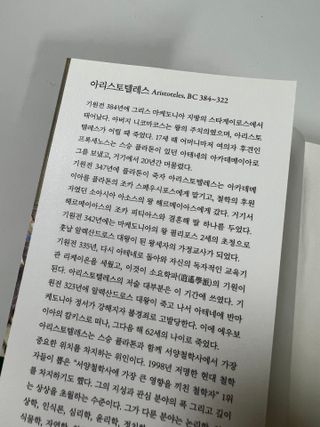 아리스토텔레스 Aristoteles, BC 384~322
기원전 384년에 그리스 마케도니아 지방의 스타게이로스에서
태어났다. 아버지 니코마코스는 왕의 주치의였으며, 아리스토
텔레스가 어릴 때 죽었다. 17세 때 어머니마저 여의자 후견인
프록세노스는 스승 플라톤이 있던 아테네의 아카데메이아로
그를 보냈고, 거기에서 20년간 머물렀다.
기원전 347년에 플라톤이 죽자 아리스토텔레스는 아카데메
이아를 플라톤의 조카 스페우시포스에게 맡기고, 철학의 후원
자였던 소아시아 아소스의 왕 헤르메이아스에게 갔다. 거기서
헤르메이아스의 조카 피티아스와 결혼해 딸 하나를 두었다.
기원전 342년에는 마케도니아의 왕 필리포스 2세의 초청으로
훗날 알렉산드로스 대왕이 된 왕세자의 가정교사가 되었다.
기원전 335년, 다시 아테네로 돌아와 자신의 독자적인 교육기
관 리케이온을 세웠고, 이것이 소요학파(逍遙學派)의 기원이
된다. 아리스토텔레스의 저술 대부분은 이 기간에 쓰였다. 기
원전 323년에 알렉산드로스 대왕이 죽고 나서 아테네에 반마
케도니아 정서가 강해지자 불경죄로 고발당한다. 이에 에우보
이아의 칼키스로 떠나, 그다음 해 62세의 나이로 죽었다.
아리스토텔레스는 스승 플라톤과 함께 서양철학사에서 가장
중요한 위치를 차지하는 위인이다. 1998년 저명한 현대 철학
자들이 뽑은 “서양철학사에 가장 큰 영향을 끼친 철학자” 1위
를 차지하기도 했다. 그의 지성과 관심 분야의 폭 그리고 깊이
는 상상을 초월하는 수준이다. 그가 다룬 분야는 논리학,
상학, 인식론, 심리학, 윤리학, 정치
식물학, 자연학,